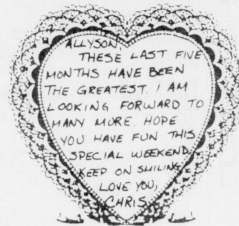 ALLYSON,
THESE LAST FIVE
MONTHS HAVE BEEN
THE GREATEST. I AM
LOOKING FORWARD TO
MANY MORE. HOPE
YOU HAVE FUN THIS
SPECIAL WEEKEND.
KEEP ON SMILING
LOVE YOU,
CHRIS